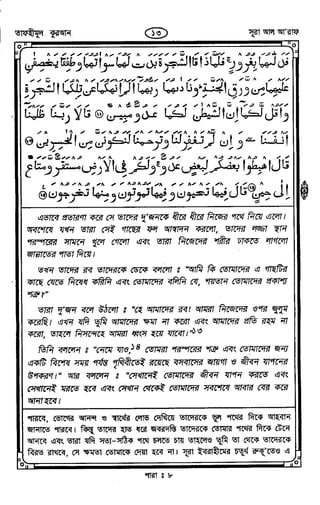 তাফহীমুল কুরআন
১৩
সূরা আল আ'রাফ
فَدَلّٰىهُمَا بِغُرُوْرٍ ۚ فَلَمَّا ذَاقَا الشَّجَرَةَ بَدَتْ لَهُمَا سَوْاٰتُهُمَا وَطَفِقَا يَخْصِفٰنِ
عَلَيْهِمَا مِنْ وَّرَقِ الْجَنَّةِ ؕ وَنَادٰىهُمَا رَبُّهُمَاۤ اَلَمْ اَنْهَكُمَا عَنْ تِلْكُمَا الشَّجَرَةِ
وَاَقُلْ لَّكُمَاۤ اِنَّ الشَّيْطٰنَ لَكُمَا عَدُوٌّ مُّبِيْنٌ ﴿۲۲﴾ قَالَا رَبَّنَا ظَلَمْنَاۤ
اَنْفُسَنَا ٚ وَاِنْ لَّمْ تَغْفِرْ لَنَا وَتَرْحَمْنَا لَنَكُوْنَنَّ مِنَ الْخٰسِرِيْنَ ﴿۲۳﴾
قَالَ اهْبِطُوْا بَعْضُكُمْ لِبَعْضٍ عَدُوٌّ ۚ وَلَكُمْ فِى الْاَرْضِ مُسْتَقَرٌّ وَّمَتَاعٌ
اِلٰى حِيْنٍ ﴿۲۴﴾ قَالَ فِيْهَا تَحْيَوْنَ وَفِيْهَا تَمُوْتُوْنَ وَمِنْهَا تُخْرَجُوْنَ ﴿۲۵﴾
এভাবে প্রতারণা করে সে তাদের দু'জনকে ধীরে ধীরে নিজের পথে নিয়ে এলো।
অবশেষে যখন তারা সেই গাছের ফল আস্বাদন করলো, তাদের লজ্জা স্থান
পরস্পরের সামনে খুলে গেলো এবং তারা নিজেদের শরীর ঢাকতে লাগলো
জান্নাতের পাতা দিয়ে।
তখন তাদের রব তাদেরকে ডেকে বললো ঃ "আমি কি তোমাদের এ গাছটির
কাছে যেতে নিষেধ করিনি এবং তোমাদের বলিনি যে, শয়তান তোমাদের প্রকাশ্য
শত্রু?"
তারা দু'জন বলে উঠলো ঃ "হে আমাদের রব! আমরা নিজেদের ওপর জুলুম
করেছি। এখন যদি তুমি আমাদের ক্ষমা না করো এবং আমাদের প্রতি রহম না
করো, তাহলে নিসন্দেহে আমরা ধ্বংস হয়ে যাবো।"১৩
তিনি বললেন ঃ "নেমে যাও,১৪ তোমরা পরস্পরের শত্রু এবং তোমাদের জন্য
একটি বিশেষ সময় পর্যন্ত পৃথিবীতেই রয়েছে বসবাসের জায়গা ও জীবন যাপনের
উপকরণ।" আর বললেন ঃ "সেখানেই তোমাদের জীবন যাপন করতে এবং
সেখানেই মরতে হবে এবং সেখান থেকেই তোমাদের সবশেষে আবার বের করে
আনা হবে।"
পারবে, ভোগের আনন্দ ও স্বার্থের লোভ দেখিয়ে তাদেরকে ভুল পথের দিকে আহবান
জানাতে পারবে। কিন্তু তাদের হাত ধরে জবরদস্তি তাদেরকে তোমার পথের দিকে টেনে
আনবে এবং তারা যদি সত্য-সঠিক পথে চলতে চায় তাহলেও তুমি তা থেকে তাদেরকে
বিরত রাখবে, সে ক্ষমতা তোমাকে দেয়া হবে না। সূরা ইবরাহীমের চতুর্থ রুকূ'তেও এ
পারা ঃ ৮